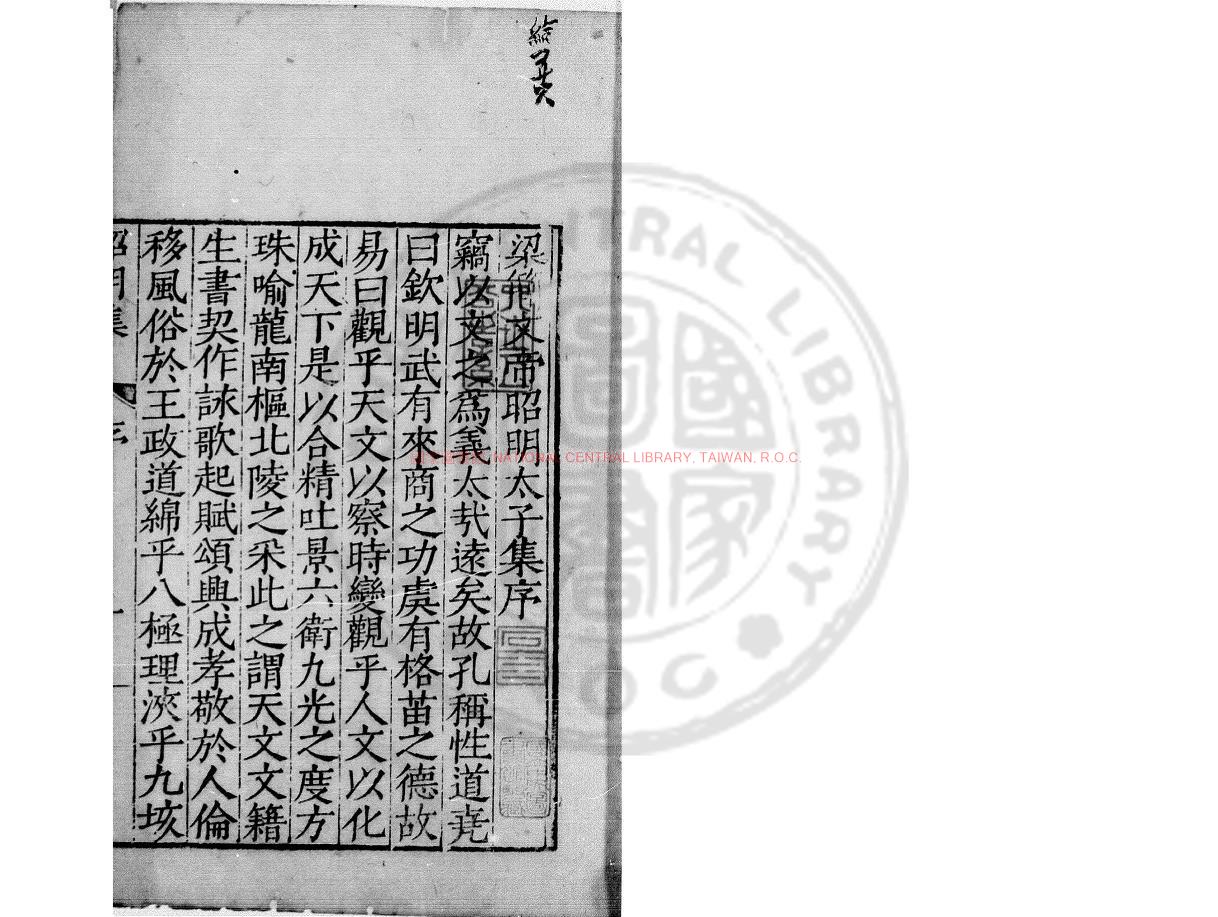 梁簡文帝昭明太子集序
竊以文之爲義太㢤遠矣故孔稱性道堯
曰欽明武有來商之功虞有格苗之德故
易曰觀乎天文以察時變觀乎人文以化
成天下是以合精吐景六衛九光之度方
珠喻龍南樞北陵之采此之謂天文文籍
生書契作詠歌起賦頌興成孝敬於人倫
移風俗於王政道綿乎八極理浹乎九垓
昭明集 序 一
NATIONAL CENTRAL LIBRARY, TAIWAN, R.O.C.